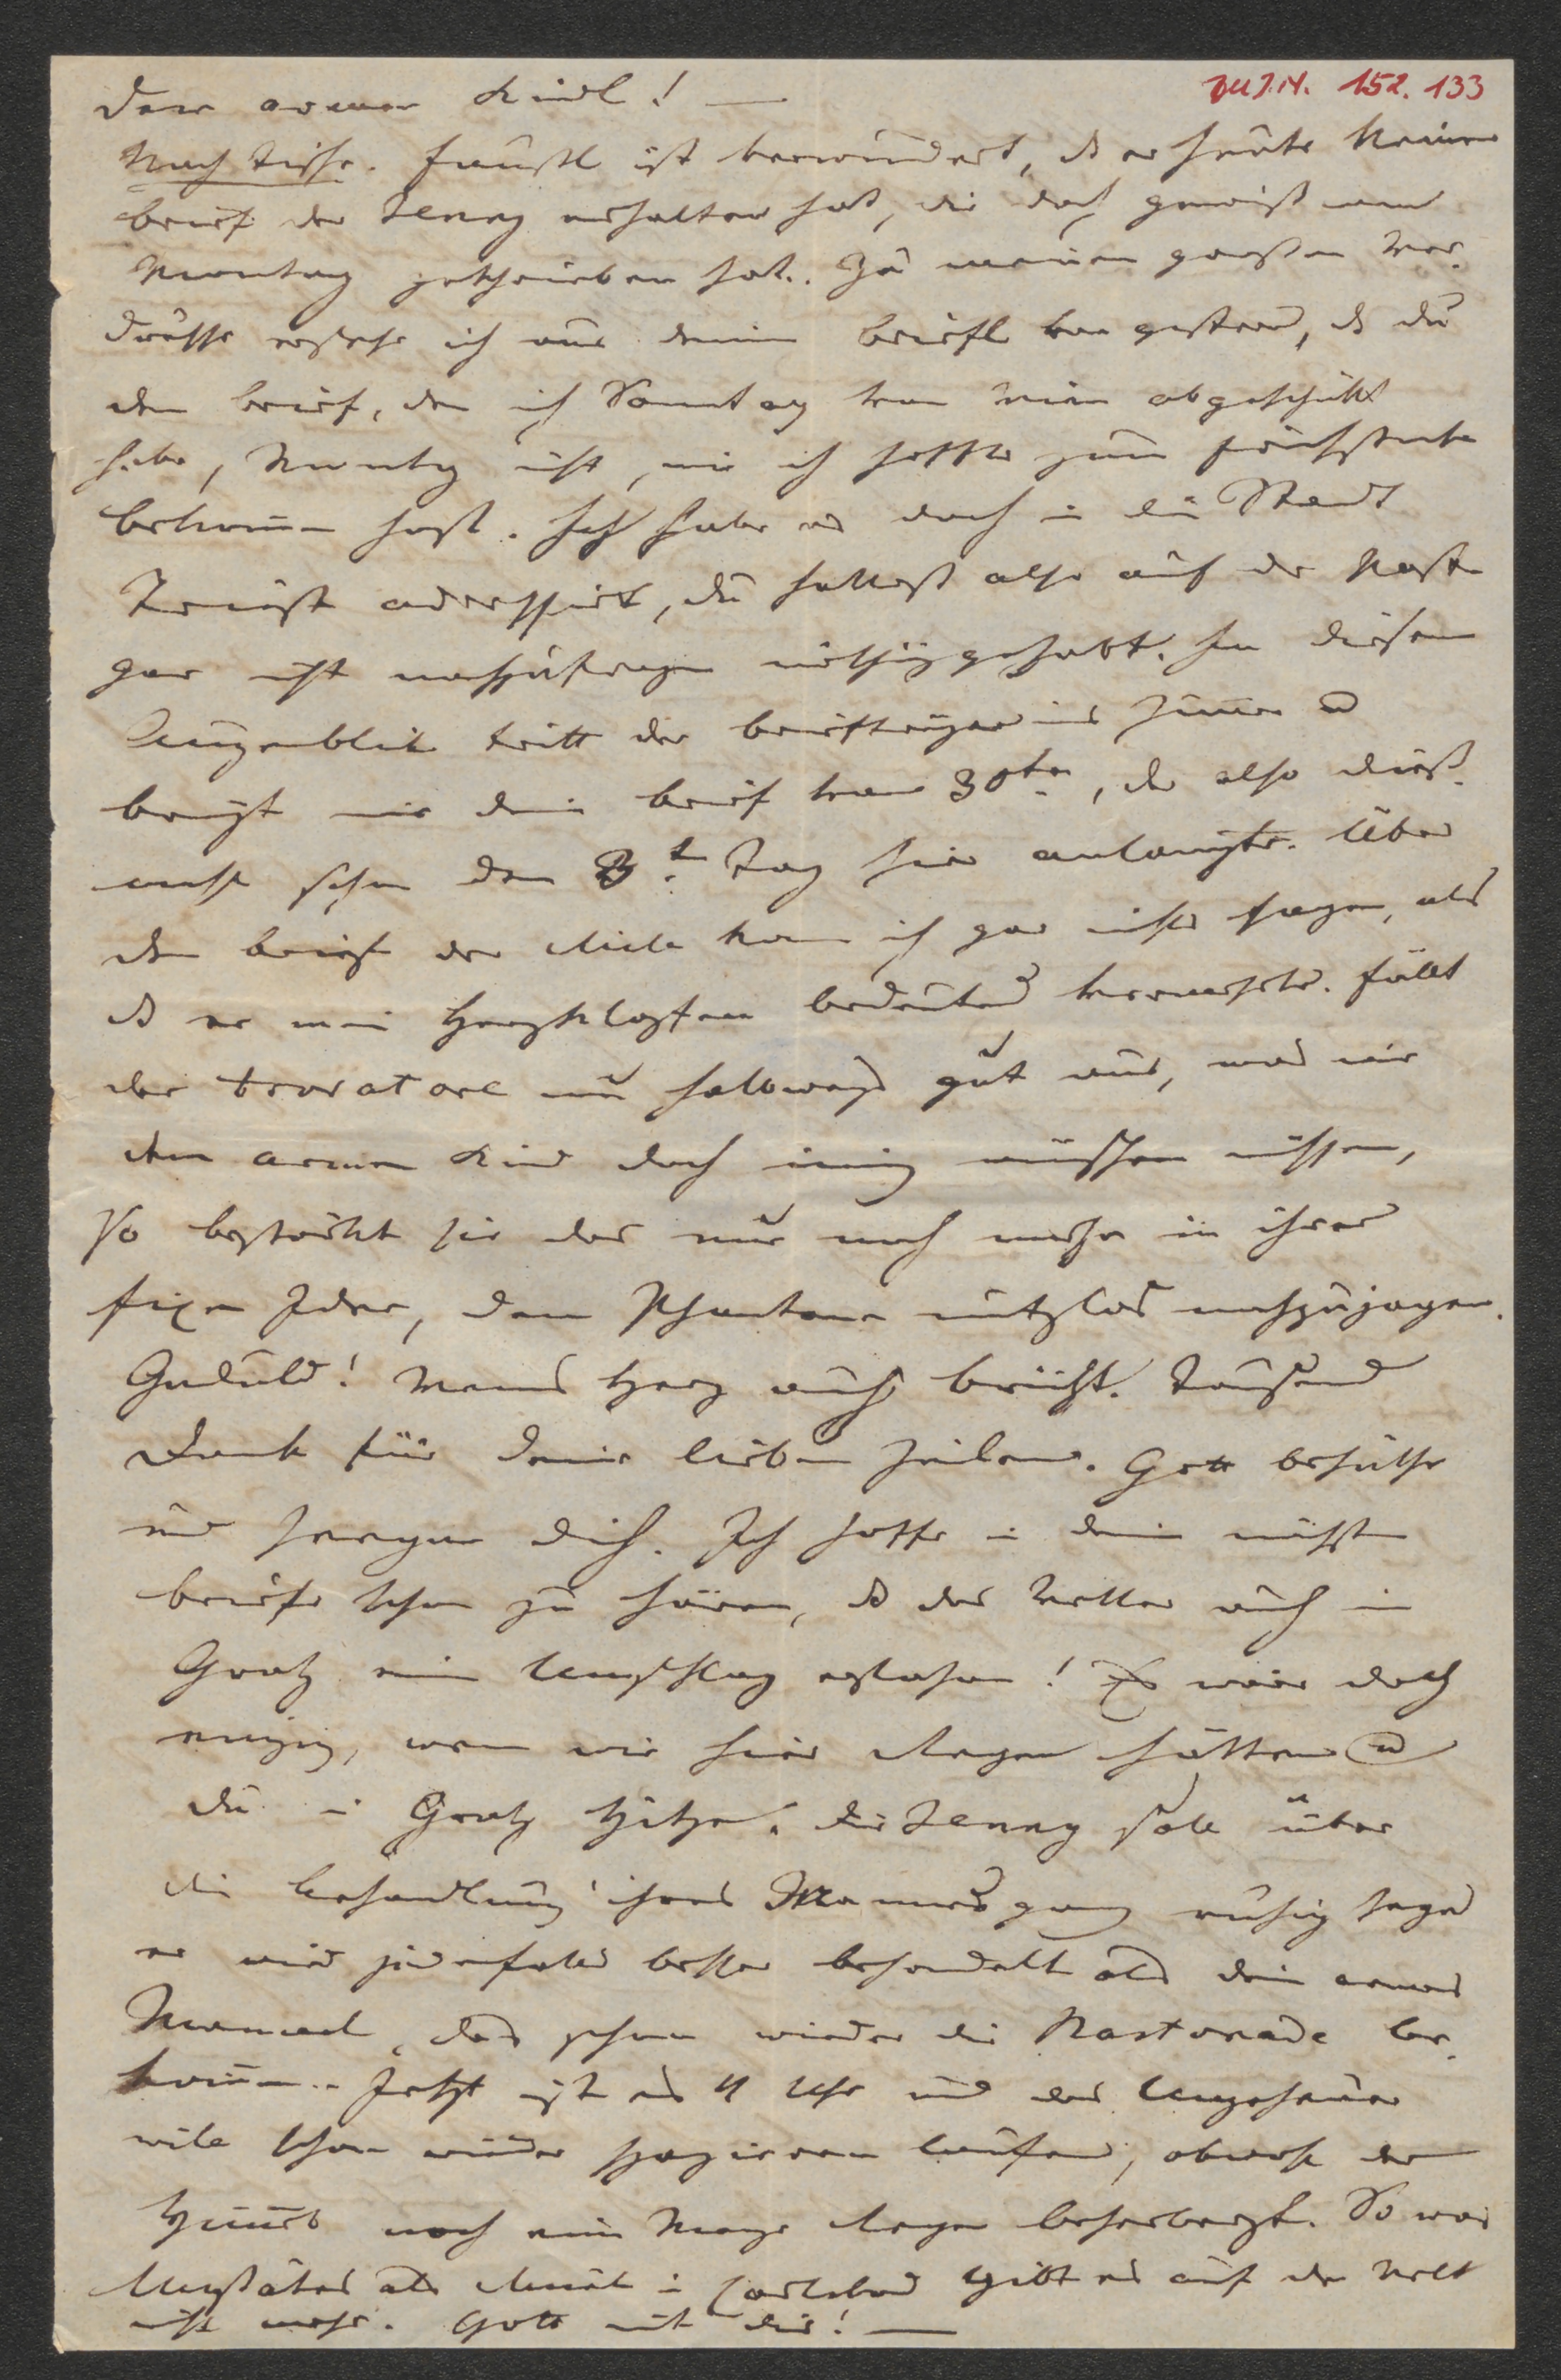 ZUJ.N. 152.133
Dein armer Kindl! —
Nach Tische. Faustl ist verwundert, daß er heute keinen
Brief der Jenny erhalten hat, die doch gewiß am
Montag geschrieben hat. Zu meinem großen Ver-
druße ersehe ich aus deinem Briefl von gestern, daß du
den Brief, den ich Sonntag von hier abgeschickt
habe, Montag nicht, wie ich hoffte zum Frühstücke
bekomen hast. Ich habe es doch in die Stadt
Triest adressirt, du hattest also auf der Post
gar nicht nachzufragen nöthig gehabt. In diesem
Augenblick tritt der Briefträger ins Zimer u
bringt mir dein Brief vom 30ten, der also dieß-
mahl schon den 3t Tag hier anlangte. Über
den Brief der Mila kan ich gar nichts sagen, als
daß er mein Herzklopfen bedeutend vermehrte. Fällt
der trovatore nur halbwegs gut aus, was wir
dem armen Kind doch innig wünschen müssen,
so bestärkt sie das nur noch mehr in ihrer
fixen Idee, dem Phantome nutzlos nachzujagen.
Geduld! Wenns Herz auch bricht. Tausend
Dank für deine lieben Zeilen. Gott behüthe
und seegne dich. Ich hoffe in dein nächsten
Briefe schon zu hören, daß das Wetter auch in
Gratz ein Umschlag erfahren! Es wäre doch
einzig, wen wir hier Regen hätten u
du in Gratz Hitze. Die Jenny soll über
die Behandlung ihres Mannes ganz ruhig sein
er wird jedenfalls besser behandelt als dein armes
Mannerl, das schon wieder die Bastonade be-
komen. Jetzt ist es 4 Uhr und das Ungeheuer
will schon wieder spazieren laufen, obwohl der
Himel noch eine Menge Regen beherbergt. So was
als in Carlsbad gibt es auf der Welt
nicht mehr. Gott mit dir! —